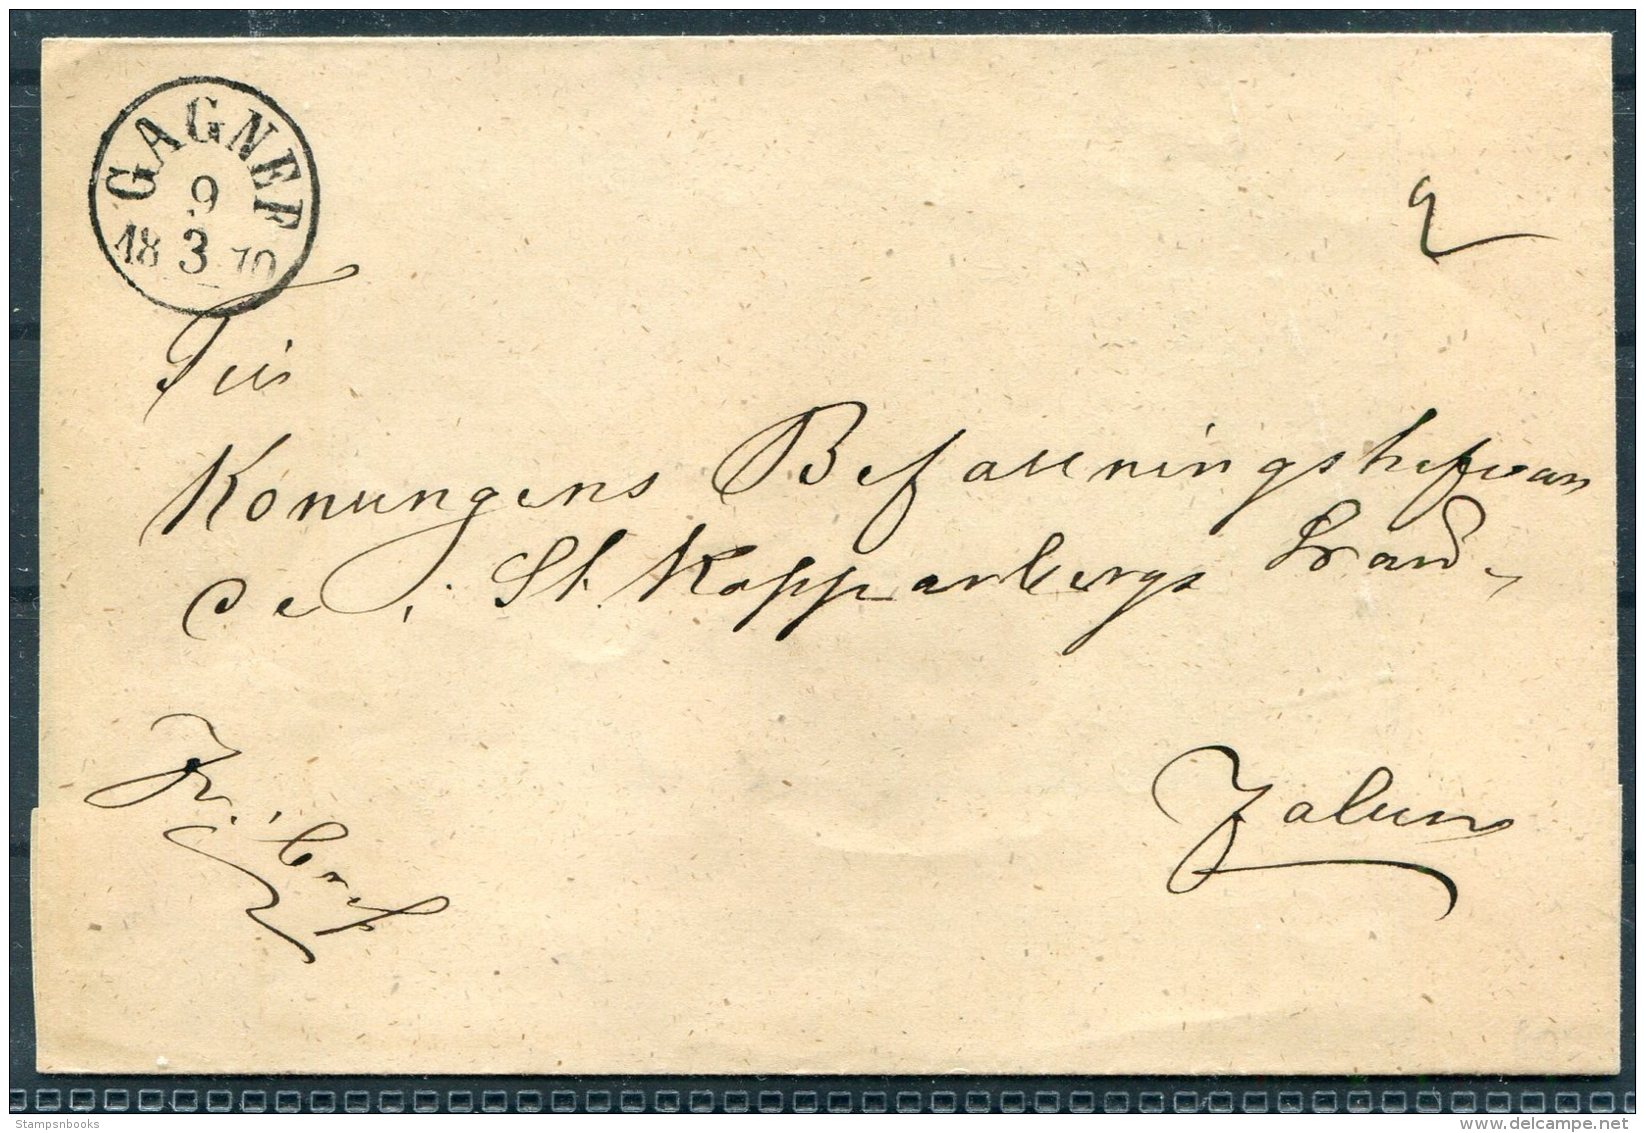 GAGNEF
9
18 3 70
2
Till
Konungens Befallningshafvan
de i St. Kopparbergs Län
Falun
Fribref
Stampsnbooks
www.delcampe.net